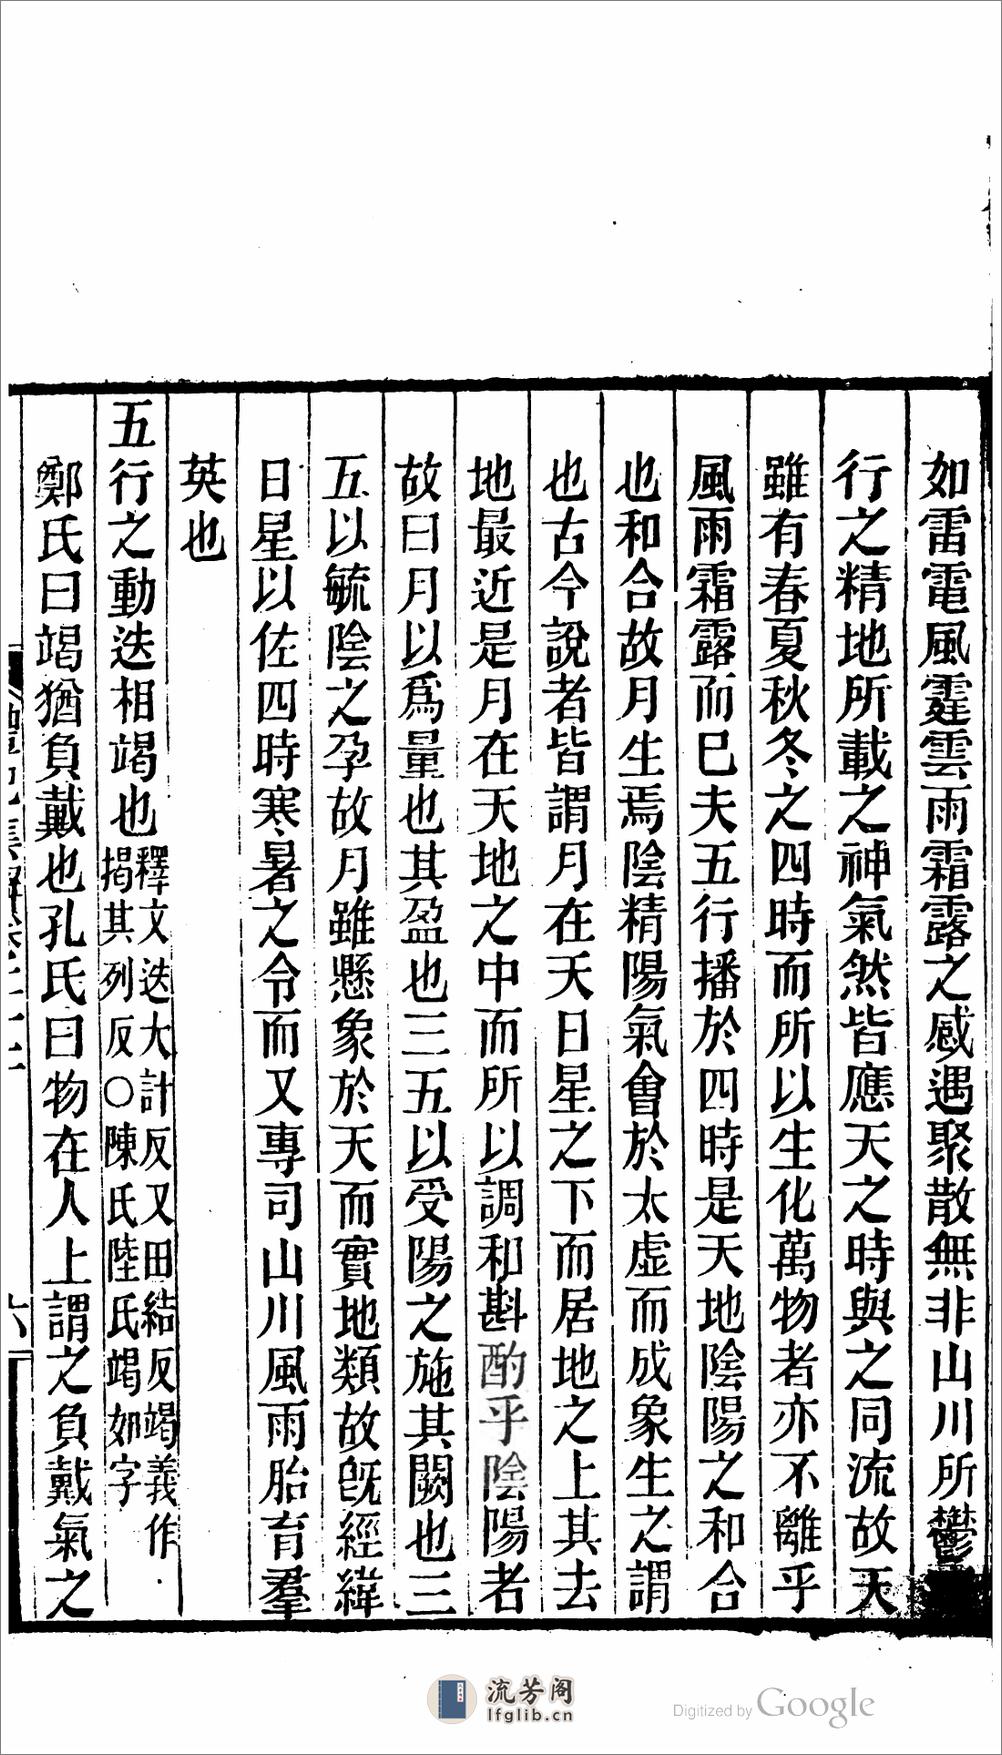 如雷電風霆雲雨霜露之感遇聚散無非山川所鬱
行之精地所載之神氣然皆應天之時與之同流故天
雖有春夏秋冬之四時而所以生化萬物者亦不離乎
風雨霜露而已夫五行播於四時是天地陰陽之和合
也和合故月生焉陰精陽氣會於太虛而成象生之謂
也古今說者皆謂月在天日星之下而居地之上其去
地最近是月在天地之中而所以調和斟酌乎陰陽者
故曰月以爲量也其盈也三五以受陽之施其闕也三
五以毓陰之孕故月雖懸象於天而實地類故旣經緯
日星以佐四時寒暑之令而又專司山川風雨胎育羣
英也
五行之動迭相竭也釋文迭大計反又田結反竭義作
揭其列反○陳氏陸氏竭如字
鄭氏曰竭猶負戴也孔氏曰物在人上謂之負戴氣之
六
流芳阁
lfglib.cn
Digitized by Google